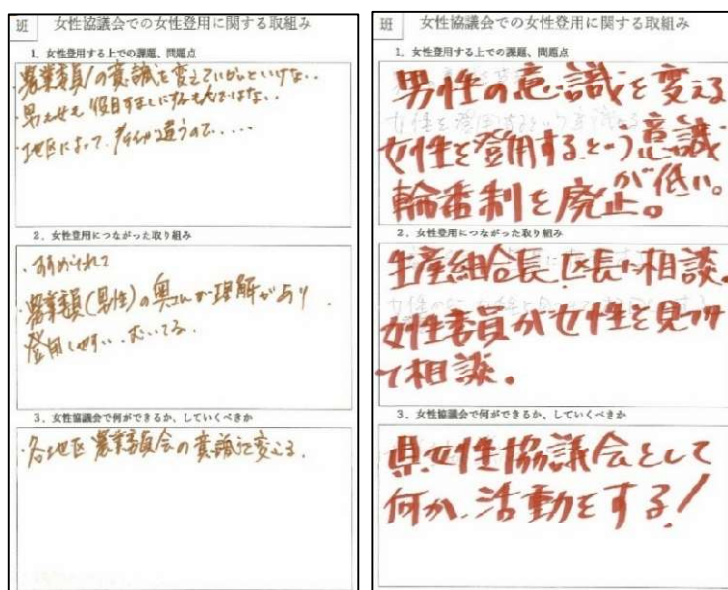 班 女性協議会での女性登用に関する取組み
1. 女性登用する上での課題、問題点
・農業委員の意識を変えていかんといけない..
・男も女も役目すましにするもんではない..
・地区によって、が違うので.....
2. 女性登用につながった取り組み
・すすめられて
・農業委員(男性)の奥さんが理解があり
登用しやすい..むいてる.
3. 女性協議会で何ができるか、していくべきか
・各地区農業委員会の意識を変える.
班 女性協議会での女性登用に関する取組み
1. 女性登用する上での課題、問題点
男性の意識を変える
女性を登用するという意識
が低い。
輪番制を廃止。
2. 女性登用につながった取り組み
生産組合長、区長に相談。
女性委員が女性を見つけ
て相談。
3. 女性協議会で何ができるか、していくべきか
県女性協議会として
何か、活動をする!